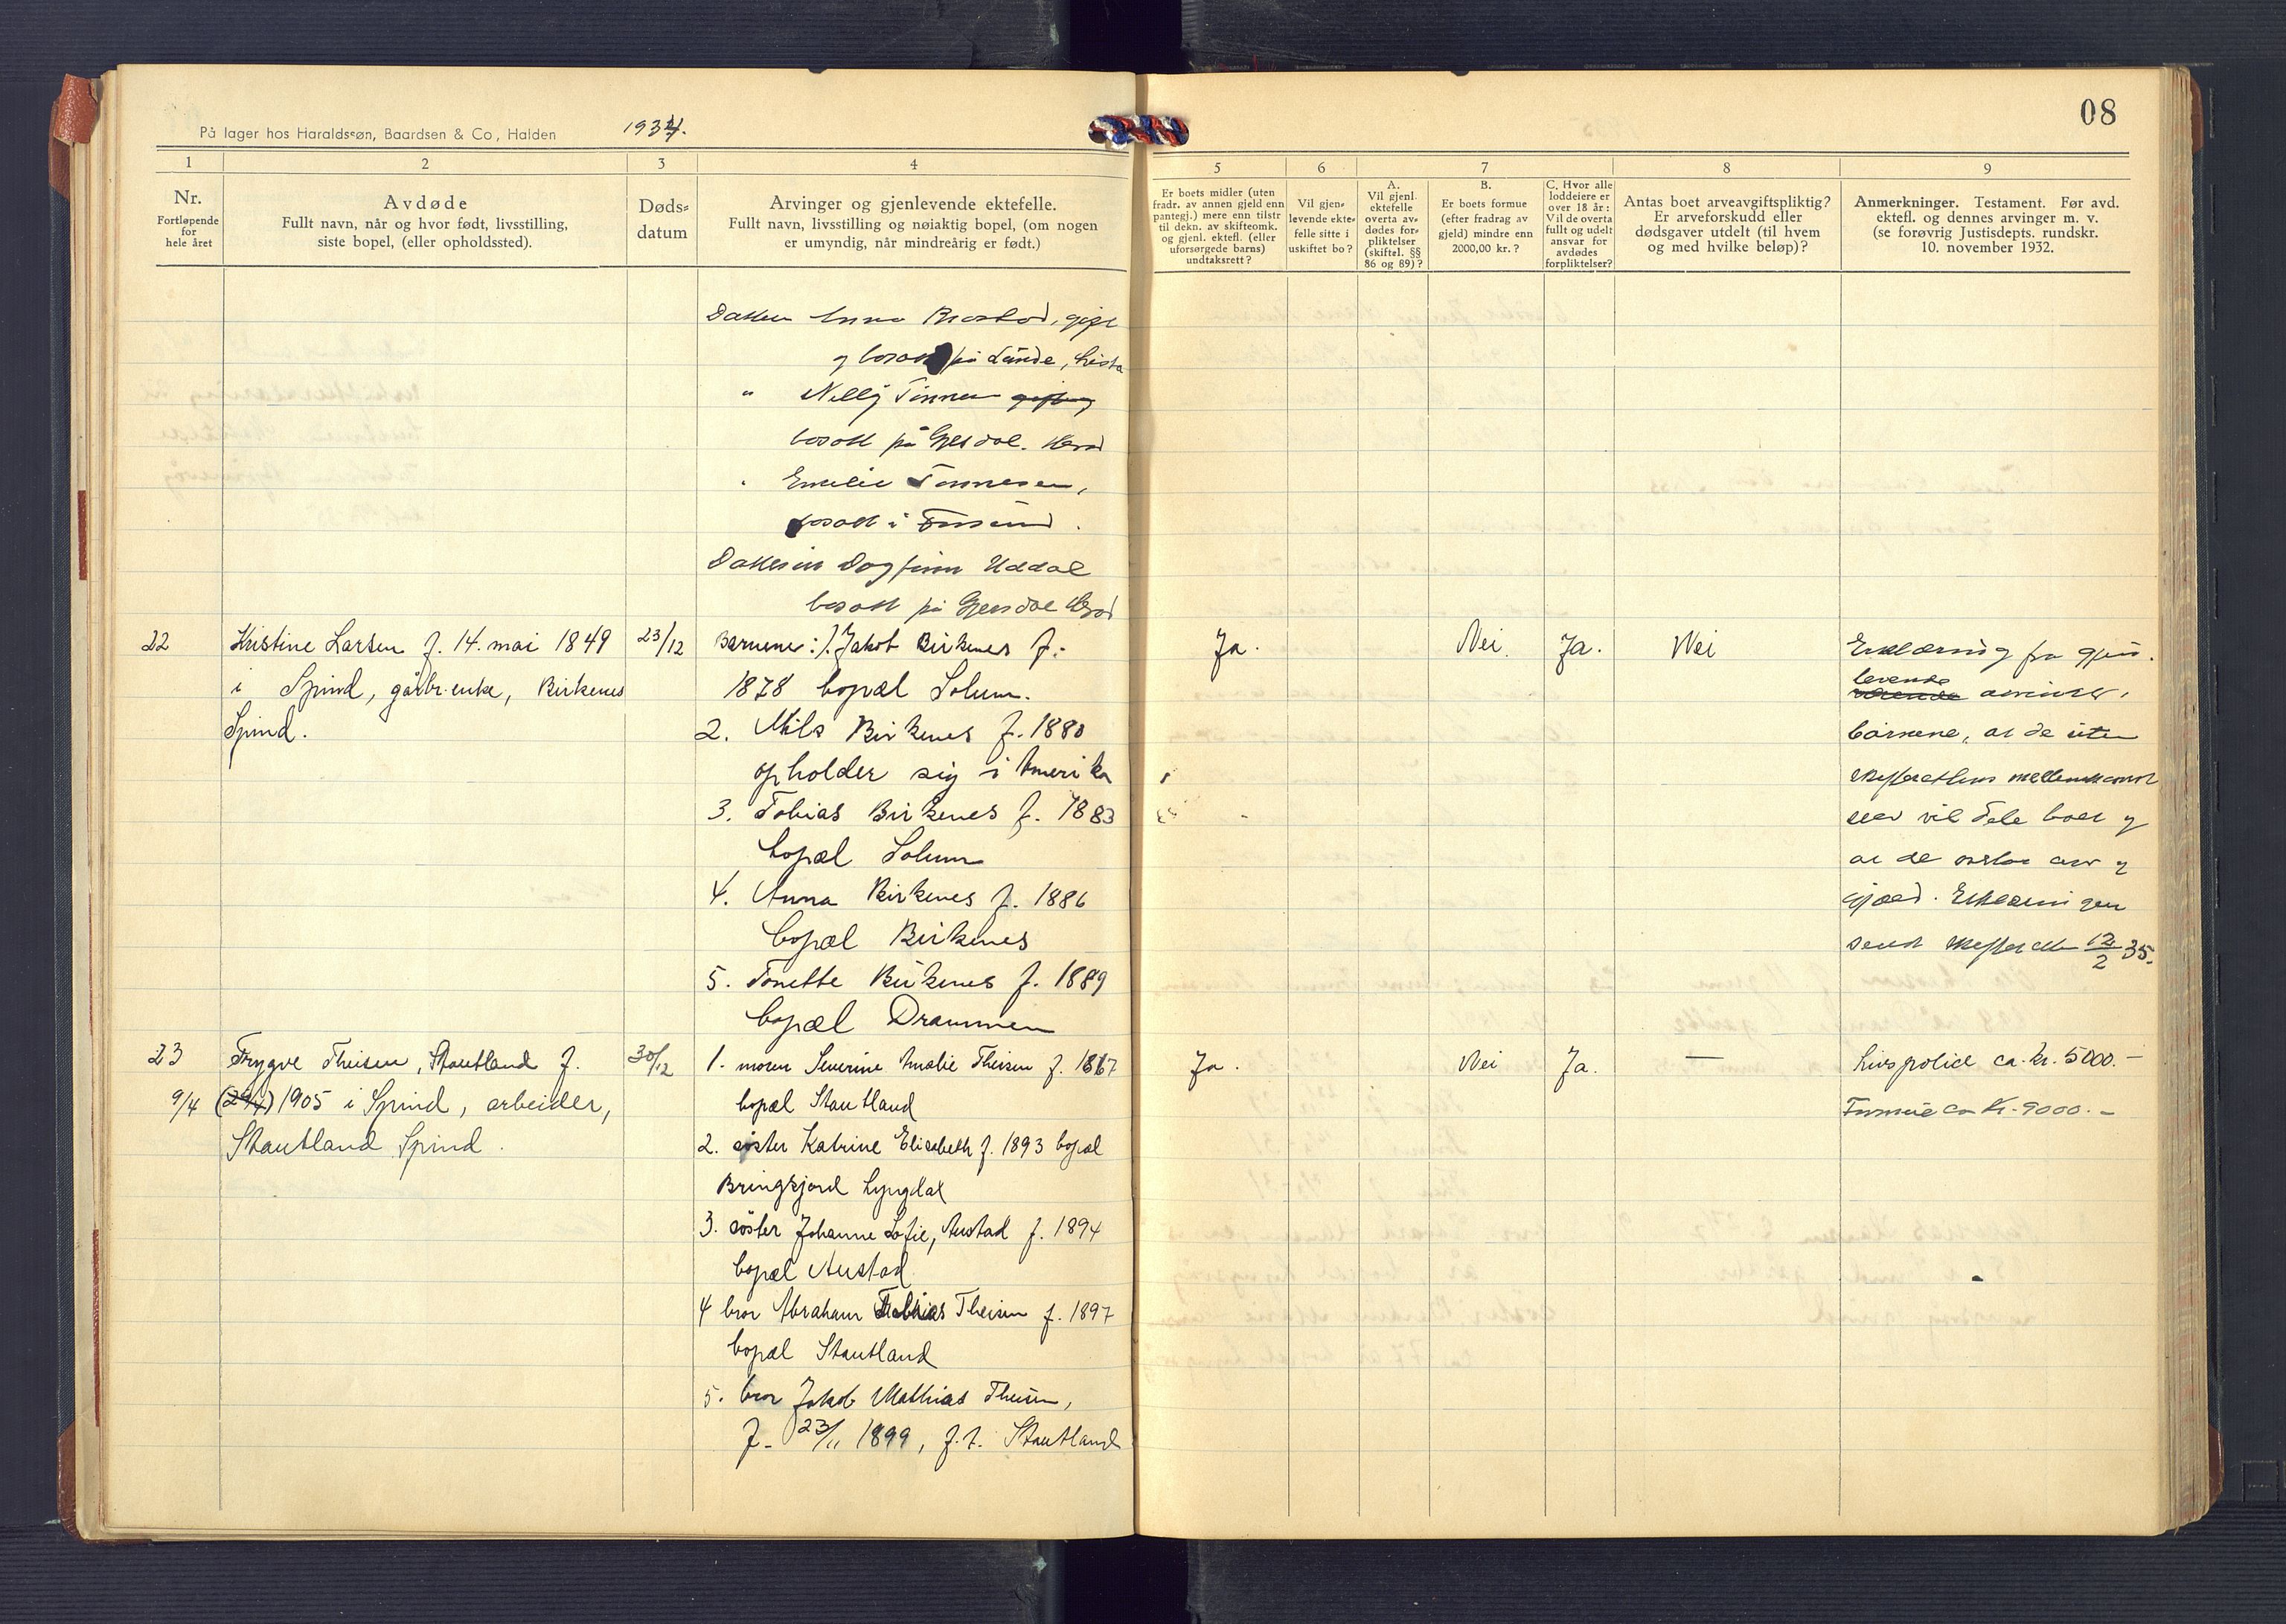 På lager hos Haraldssøn, Baardsen & Co., Halden
1934.
08
1
2
3
4
5
6
7
8
9
Nr.
Fortløpende
for
hele året
Avdøde
Fullt navn, når og hvor født, livsstilling,
siste bopel, (eller opholdssted).
Døds-
datum
Arvinger og gjenlevende ektefelle.
Fullt navn, livsstilling og nøiaktig bopel, (om nogen
er umyndig, når mindreårig er født.)
Er boets midler (uten
fradr. av annen gjeld enn
pantegj.) mere enn tilstr
til dekn. av skifteomk.
og gjenl. ektefl. (eller
uforsørgede barns)
undtaksrett?
Vil gjen-
levende ekte-
felle sitte i
uskiftet bo?
A.
Vil gjenl.
ektefelle
overta av-
dødes for-
pliktelser
(skiftel. §§
86 og 89)?
B.
Er boets formue
(efter fradrag av
gjeld) mindre enn
2000,00 kr.?
C. Hvor alle
loddeiere er
over 18 år:
Vil de overta
fullt og udelt
ansvar for
avdødes
forpliktelser?
Antas boet arveavgiftspliktig?
Er arveforskudd eller
dødsgaver utdelt (til hvem
og med hvilke beløp)?
Anmerkninger. Testament. Før avd.
ektefl. og dennes arvinger m. v.
(se forøvrig Justisdepts. rundskr.
10. november 1932.
Datter Anna Brastad, gift
og bosatt på Lunde, Lista
" Nelly Tønnesen gift og
bosatt på Gjesdal. Herad
" Emilie Tønnesen,
bosatt i Farsund.
Dattersøn Dagfinn Uddal
bosatt på Gjesdal Herad
22
Kristine Larsen f. 14. mai 1849
i Spind, gårbr. enke, Birkenes
Spind.
23/12
Barnene: 1. Jakob Birkenes f.
1878 bopæl Solum.
2. Nils Birkenes f. 1880
opholder sig i Amerika
3. Tobias Birkenes f. 1883
bopæl Solum
4. Anna Birkenes f. 1886
bopæl Birkenes
5. Tonette Birkenes f. 1889
bopæl Drammen
Ja.
Nei.
Ja.
Nei
Erklæring fra gjen-
levende
arvinger,
barnene, at de uten
skifterettens mellemkomst
selv vil dele boet og
at de overtar arv og
gjæld. Erklæringen
sendt skifteretten 12/2 35.
23
Trygve Theisen, Stautland f.
9/4 (29/4) 1905 i Spind, arbeider,
Stautland Spind.
30/12
1. moren Severine Amalie Theisen f. 1867
bopæl Stautland
2. søster Katrine Elisabeth f. 1893 bopæl
Bringsjord Lyngdal
3. søster Johanne Sofie, Austad f. 1894
bopæl Austad
4 bror Abraham Tobias Theisen f. 1897
bopæl Stautland
5. bror Jakob Mathias Theisen,
f. 23/11 1899, f.t. Stautland
Ja.
Nei
Ja.
—
Livspolice ca. kr. 5000.-
Formue ca kr. 9000.-